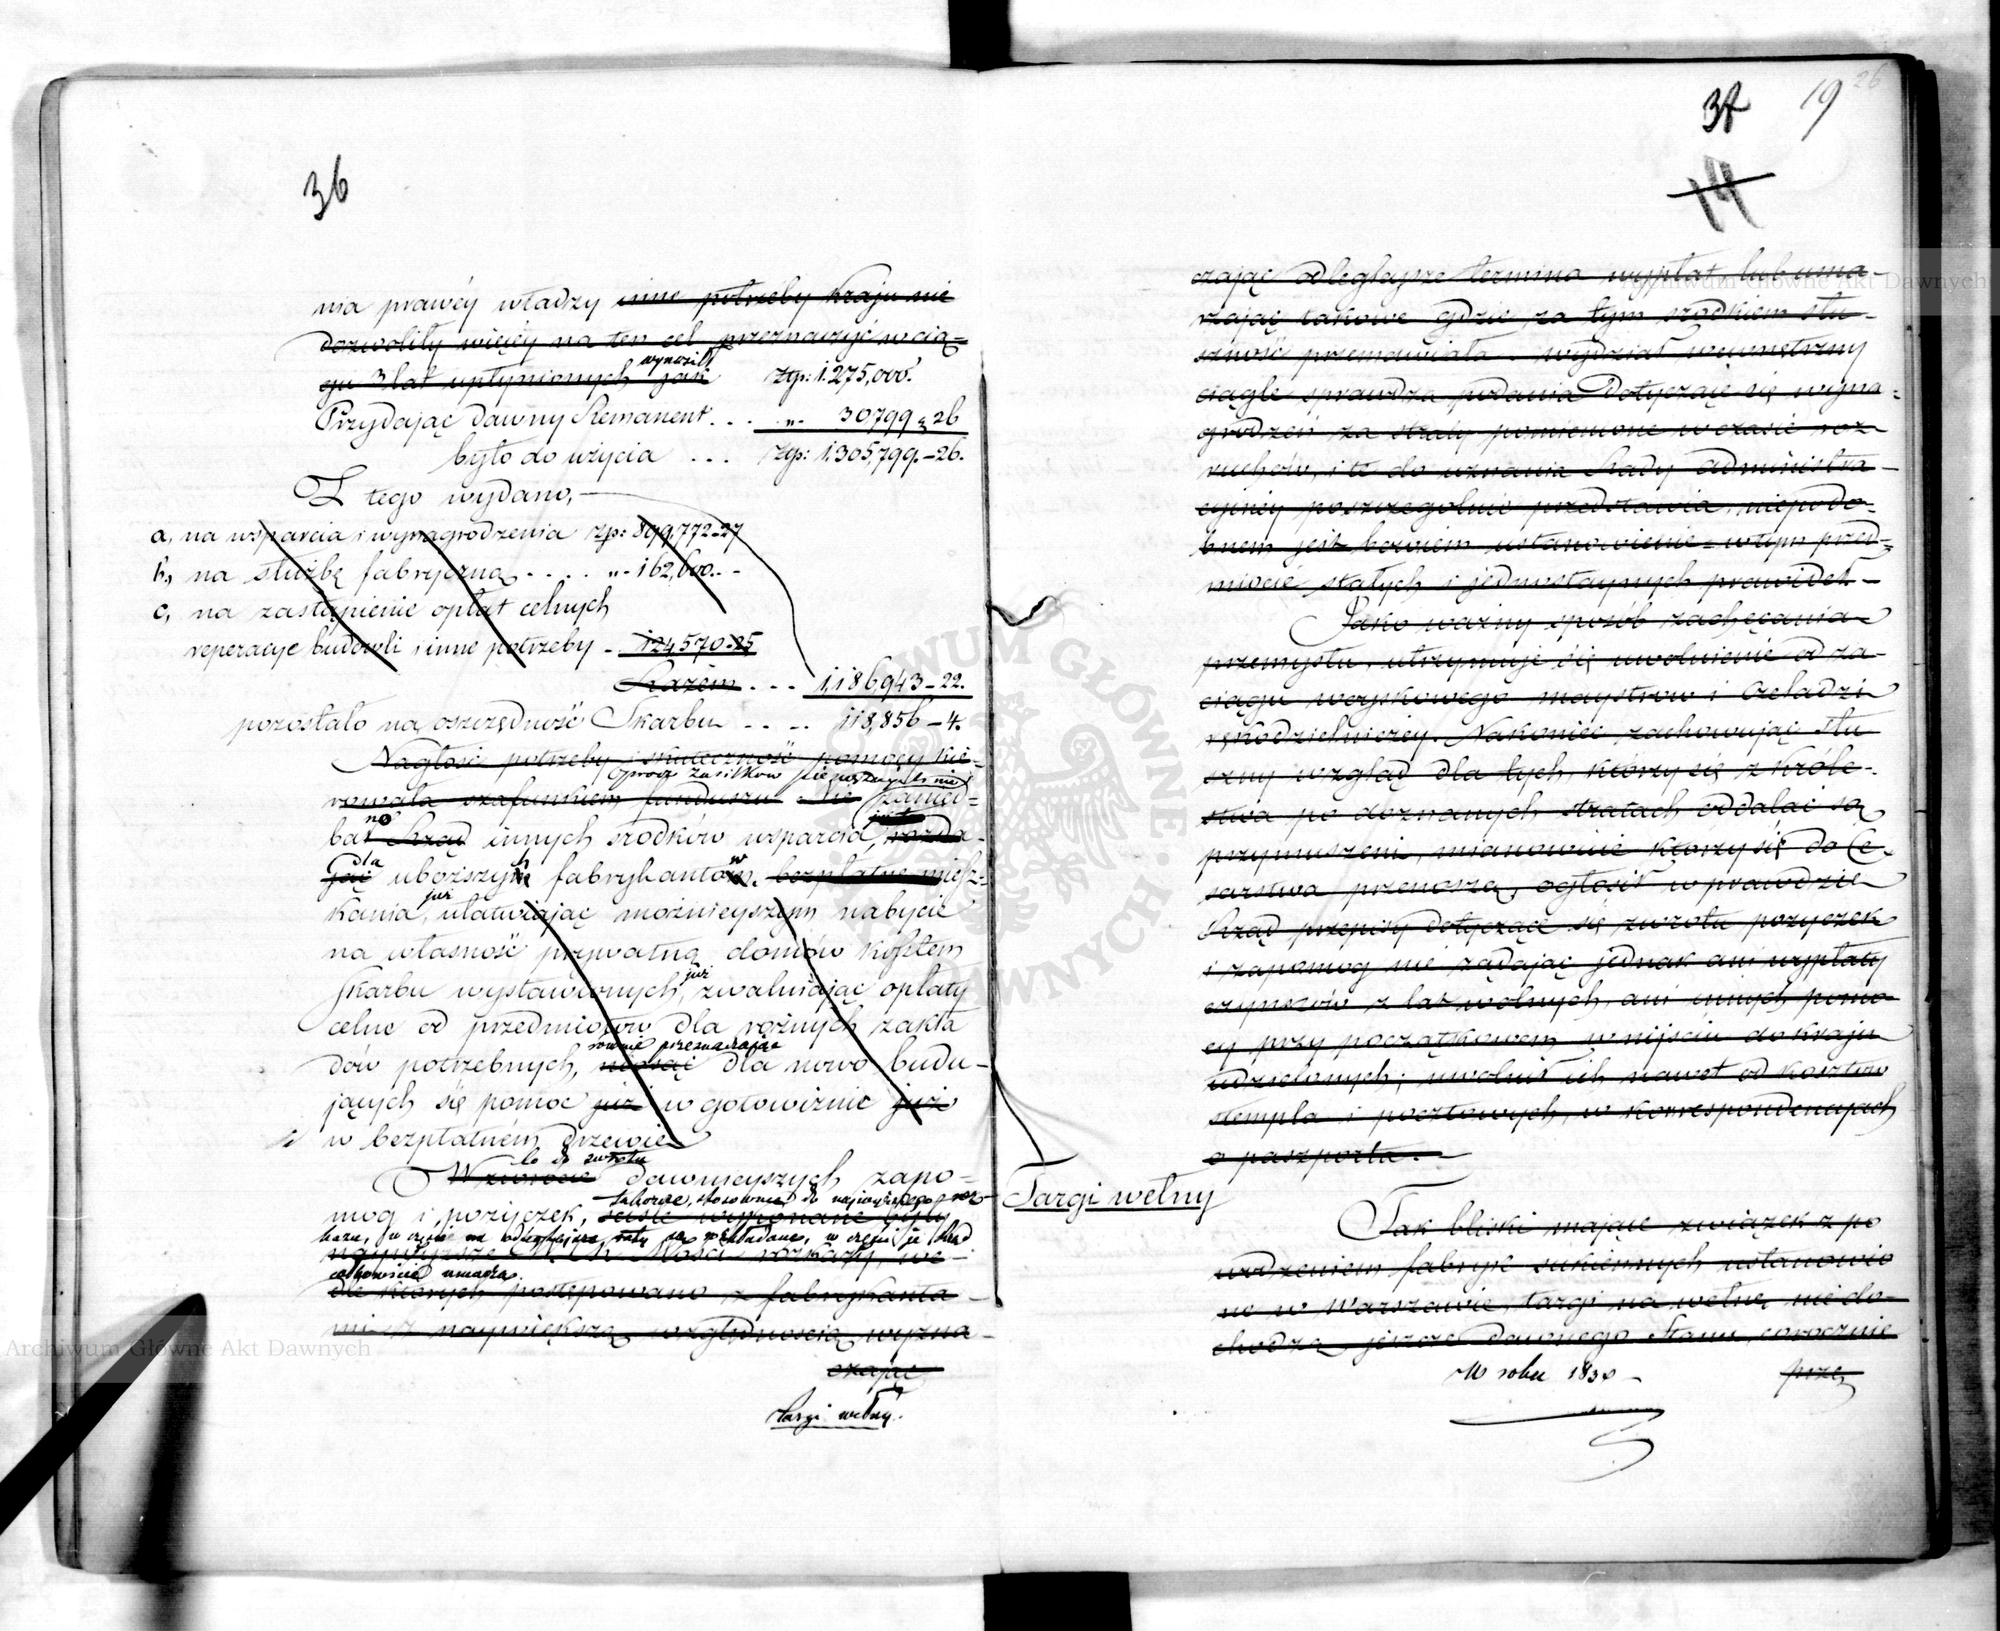 36
nia prawéy władzy inne potrzeby kraju nie
dozwoliły więcéy na ten cel przeznaczyć w cią=
wynosił
gu 3 lat upłynionych jak Złp: 1.275,000.
Przydając dawny Remanent . . . „ 30799 „ 26
było do użycia . . . Złp: 1.305799.-26.
Z tego wydano,
a, na wsparcia i wynagrodzenia złp: 899,772-27
b, na służbę fabryczną . . . . „ - 162,600. -
c, na zastąpienie opłat celnych
reperacye budowli i inne potrzeby - 124,570-25
Razem . . . 1,186,943-22.
pozostało na oszczędność Skarbu . . . . 118,856-4.
Nagłość potrzeby i skuteczność pomocy kie=
oprócz zasiłków pieniężnych nie
rowała szafunkiem funduszu. Nie zanied=
no
bał Rząd innych srodków wsparcia, rozda=
dla
jąc uboższych fabrykantów bezpłatne miesz=
już
kania, ułatwiając możnieyszym nabycie
na własność prywatną domów kosztem
już
Skarbu wystawionych, zwalniając opłaty
celne od przedmiotów dla różnych zakła
równie przeznaczając
dów potrzebnych, niosąc dla nowo budu-
jących się pomoc już w gotowiźnie już
w bezpłatném drzewie
Co do zwrotu
W zwrocie dawnieyszych zapo-
takowe, stosownie do naywyższego roz-
mog i pożyczek, ściśle wykonane były
kazu, w części na odlegleysze raty są rozkładane, w części je Rząd
naywyższe W. C. K. Mości rozkazy, we-
całkowicie umarza.
dle których postępowano z fabrykanta-
mi z naywiększą względnością wyzna-
czając
Targi wełny.
37
19
26
14
czając odlegleysze termina wypłat, lub uma-
rzając takowe gdzie za tym srodkiem słu-
szność przemawiała. Wydział wewnętrzny
ciągle sprawdza podania dotyczące się wyna=
grodzeń za straty poniesione w czasie roz
ruchów, i te do uznania Rady Administra-
cyjnéy poszczególnie przedstawia, niepodo-
bnem jest bowiem ustanowienie w tym przed=
miocie stałych i jednostaynych prawideł -
Jako ważny sposób zachęcania
przemysłu, utrzymuje się uwolnienie od za-
ciągu woyskowego maystrów i czeladzi
rękodzielniczéy. Nakoniec zachowując słu
szny wzgląd dla tych, którzy się z Króle-
stwa po doznanych stratach oddalać są
przymuszeni, mianowicie którzy się do Ce-
sarstwa przenoszą, ogłosił wprawdzie
Rząd przepisy dotyczące się zwrotu pożyczek
i zapomog nie żądając jednak ani wypłaty
czynszów z lat wolnych, ani innych pomo
cy przy początkowem weniyściu do kraju
udzielonych; uwolnił ich nawet od kosztów
stempla i pocztowych, w korrespondencyach
o paszporta. -
Targi wełny
Tak bliski mające związek z po
wodzeniem fabryk sukiennych ustanowio
ne w Warszawie, targi na wełnę, nie do-
chodzą jeszcze dawnego stanu, corocznie
W roku 1830 -
prze